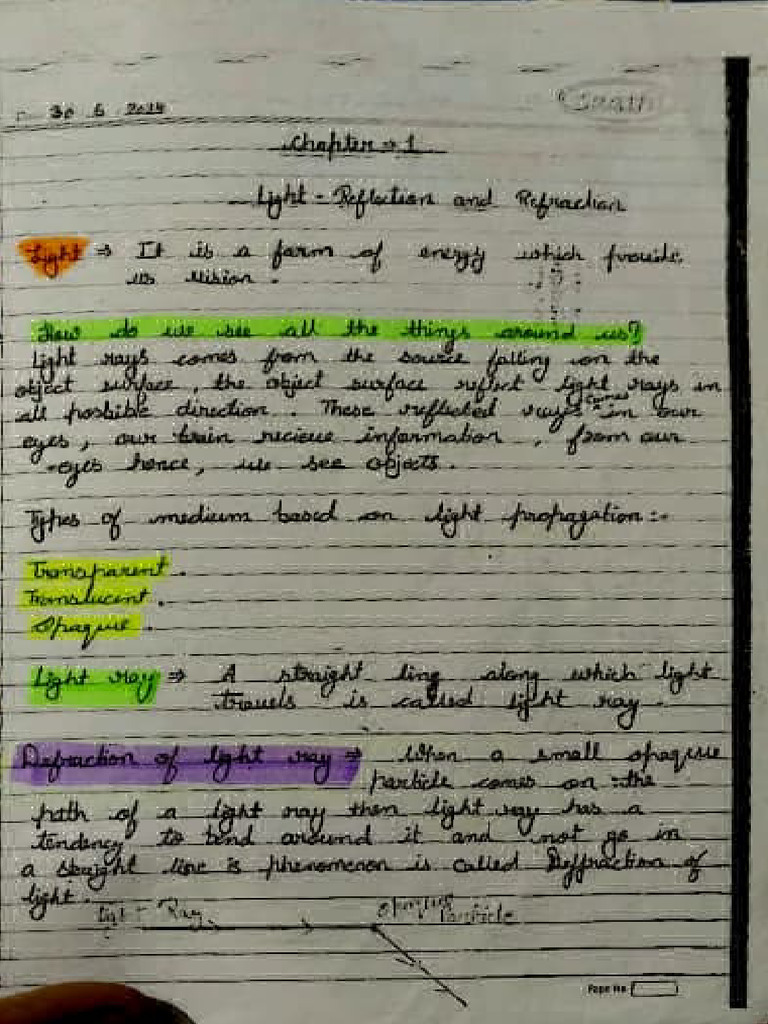 30 5 2024
Saathi
Chapter ⇒ 1
Light - Reflection and Refraction
Light ⇒ It is a form of energy which provide
us vision.
How do we see all the things around us?
Light rays comes from the source falling on the
object surface, the object surface reflect light rays in
all possible direction. These reflected rays comes in our
eyes, our brain recieve information, from our
eyes hence, we see objects.
Types of medium based on light propagation:-
Transparent.
Translucent.
Opaque.
Light ray ⇒ A straight line along which light
travels is called light ray.
Defraction of light ray ⇒ When a small opaque
particle comes on the
path of a light ray then light ray has a
tendency to bend around it and not go in
a straight line is phenomenon is called Deffraction of
light.
Light - Ray
Opaque
Particle
Page No